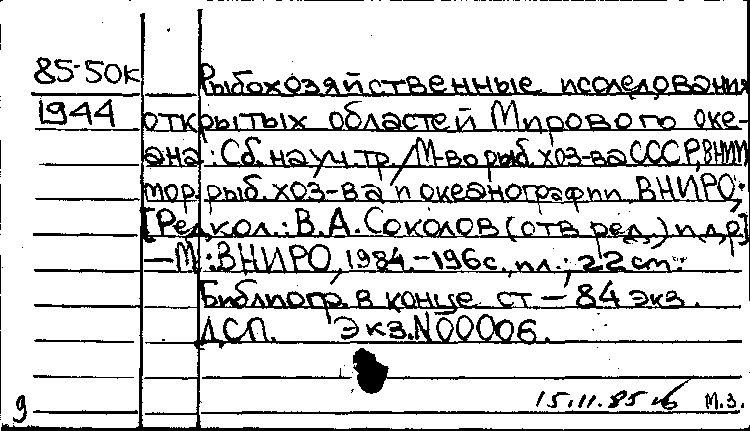 85-50к Рыбохозяйственные исследования
1944 открытых областей Мирового оке-
ана: Сб. науч. тр. / М-во рыб. хоз-ва СССР, ВНИИ
мор. рыб. хоз-ва и океанографии ВНИРО;
[Редкол.: В.А. Соколов (отв. ред.) и др.]
— М.: ВНИРО, 1984. - 196 с., ил.; 22 см.
Библиогр. в конце ст — 84 экз.
ДСП. Экз. N00006.
15.11.85 м.з.
g